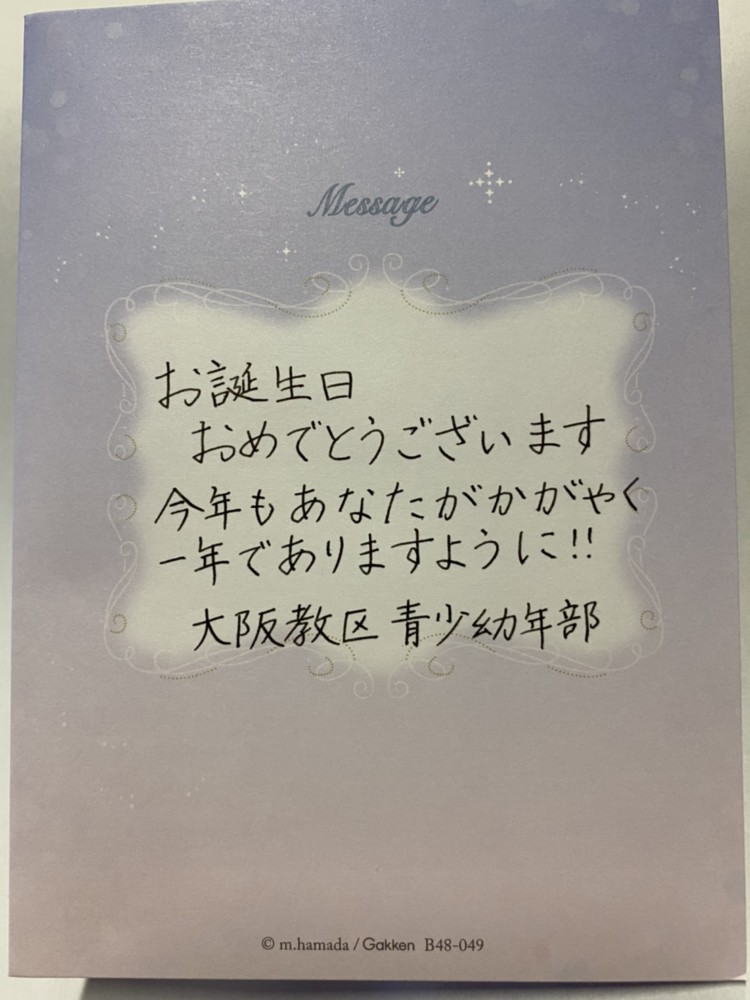 Message
お誕生日
おめでとうございます
今年もあなたがかがやく
一年でありますように!!
大阪教区 青少幼年部
© m.hamada / Gakken B48-049